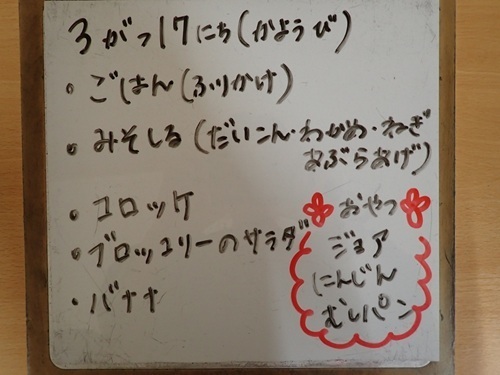 3がつ17にち(かようび)
・ごはん(ふりかけ)
・みそしる(だいこん・わかめ・ねぎ
あぶらあげ)
・コロッケ
・ブロッコリーのサラダ
・バナナ
おやつ
ジョア
にんじん
むしパン